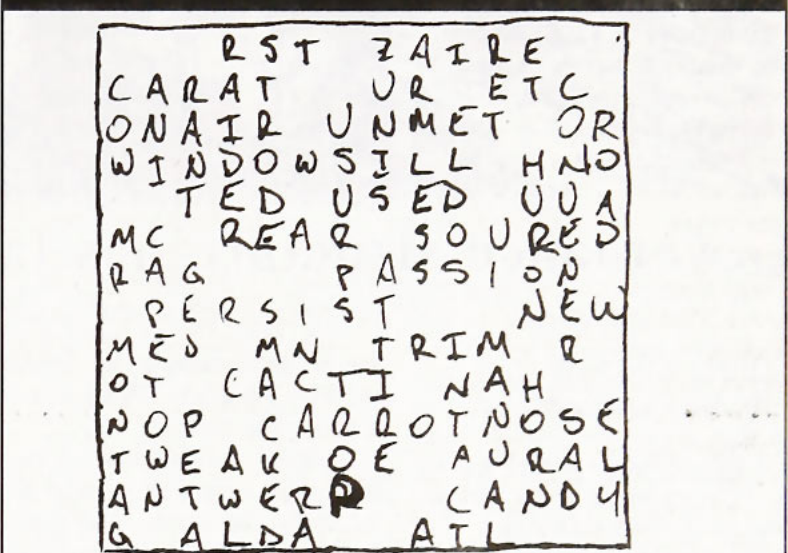 RST ZAIRE
CARAT UR ETC
ONAIR UNMET OR
WINDOWSILL HNO
TED USED UUA
MC REAR SOURED
RAG PASSION
PERSIST NEW
MED MN TRIM R
OT CACTI NAH
NOP CARROTNOSE
TWEAK OE AURAL
ANTWERP CANDY
G ALDA ATL